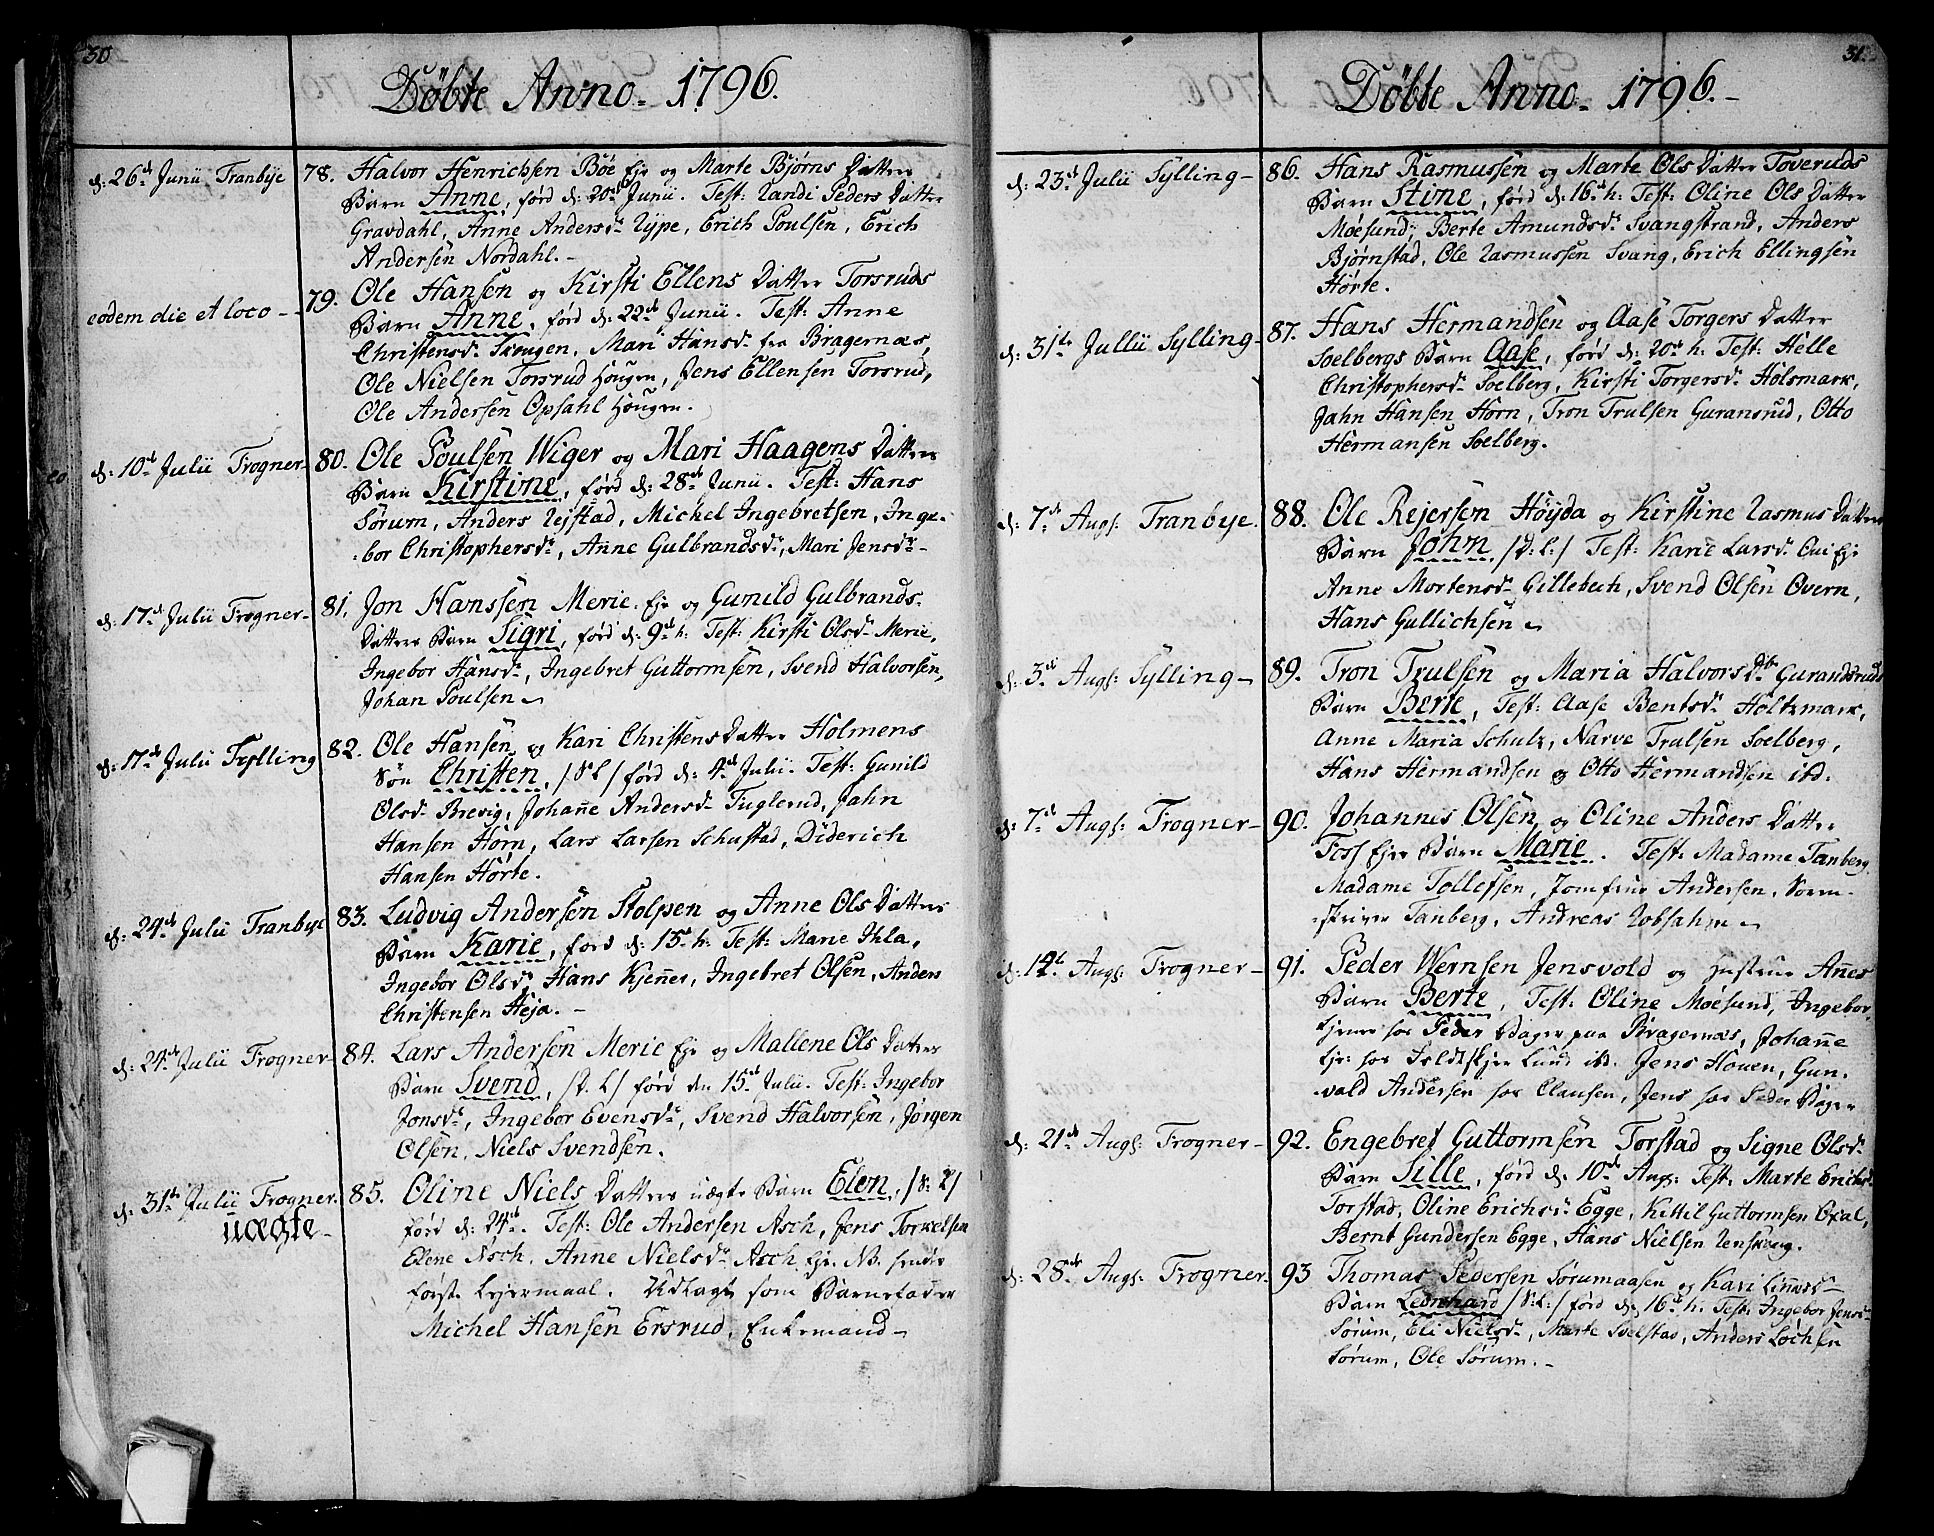 30
Döbte Anno. 1796.
d: 26de Junii Tranbÿe 78. Halvor Henrichsen Böe Eje og Marte Bjørns Datters
Barn Anne, förd d: 20de Junii. Test: Randi Peders Datter
Gravdahl, Anne Andersdr Rype, Erich Poulsen, Erich
Andersen Nordahl.-
eodem die et loco - 79. Ole Hansen og Kirsti Ellens Datter Torsruds
Barn Anne, förd d: 22de Junii. Test: Anne
Christensdr Skougen, Mari Hansdr fra Bragernæs,
Ole Nielsen Torsrud Hougen, Jens Ellensen Torsrud,
Ole Andersen Opsahl Hougen.
d: 10de Julii Frogner 80. Ole Poulsen Wiger og Mari Haagens Datters
Barn Kirstine, förd d: 28de Junii. Test: Hans
Sörum, Anders Rejstad, Michel Ingebretsen, Inge-
bor Christophersdr, Anne Gulbrandsdr, Mari Jensdr -
d: 17de Julii Frogner 81. Jon Hanssen Merie Eje og Gunild Gulbrands-
Datters Barn Sigri, förd d: 9de h: Test: Kirsti Olsdr Merie,
Ingebor Hansdr, Ingebret Guttormsen, Svend Halvorsen,
Johan Poulsen
d: 17de Julii Sylling 82. Ole Hansen og Kari Christens Datter Holmens
Sön Christen, /S:L/ förd d: 4de Julii. Test: Gunild
Olsdr Brevig, Johañe Andersdr Fuglerud, Jahn
Hansen Horn, Lars Larsen Schustad, Diderich
Hansen Hörte.
d: 24de Julii Tranbÿe 83. Ludvig Andersen Stolpen og Anne Ols Datters
Barn Karie, förd d: 15de h: Test: Marie Ihla,
Ingebor Olsdr Hans Kjeñer, Ingebret Olsen, Anders
Christensen Heja.-
d: 24de Julii Frogner 84. Lars Andersen Merie Eje og Mallene Ols Datters
Barn Svend, /S:L/ förd den 15de Julii. Test: Ingebor
Jonsdr, Ingebor Evensdr, Svend Halvorsen, Jörgen
Olsen, Niels Svendsen.
d: 31te Julii Frogner 85. Oline Niels Datters uægte Barn Elen, /S:L/
uægte-
förd d: 24de. Test: Ole Andersen Asch, Jens Torkelsen
Elene Asch, Anne Nielsdr Asch Eje. NB. hendes
förste Lejermaal. Udlagt som Barnefader
Michel Hansen Ersrud, Enkemand
31.
Döbte Anno. 1796.-
d: 23de Julii Sylling 86. Hans Rasmussen og Marte Ols Datter Toveruds
Barn Stine, förd d: 16de h: Test: Oline Ols Datter
Möesund, Berte Amundsdr Svangstrand, Anders
Bjørnstad, Ole Rasmussen Svang, Erich Ellingsen
Hörte.
d: 31te Jullii Sylling 87. Hans Hermandsen og Aase Torgers Datter
Soelbergs Barn Aase, förd d: 20de h: Test: Helle
Christophersdr Soelberg, Kirsti Torgersdr Holsmark,
Jahn Hansen Horn, Tron Trulsen Guransrud, Otto
Hermansen Soelberg.
d: 7de Augs: Tranbÿe. 88. Ole Rejersen Höyda og Kirstine Rasmus Datters
Barn John, /S:L:/ Test: Karie Larsdr Eje
Anne Mortensdr Gillebech, Svend Olsen Overn,
Hans Gullichsen
d: 3de Augs: Sylling 89. Tron Trulsen og Maria Halvors Dtr Gurandsruds
Barn Berte, Test: Aase Bentsdr Holtzmark,
Anne Maria Schulz, Narve Trulsen Soelberg,
Hans Hermandsen og Otto Hermandsen ibd.
d: 7de Augs: Frogner 90. Johannes Olsen og Oline Anders Datter
Foss Ejer Barn Marie. Test: Madame Tanberg
Madame Tollefsen, Jomfrue Andersen, Soren-
skriver Tanberg, Andreas Robsahm
d: 14de Augs: Frogner 91. Peder Wernsen Jensvold og Hustrue Añes
Barn Berte, Test: Oline Möesund, Ingebor
tjener hos Peder Bager paa Bragernæs, Johañe
tje: hos Feldtskjer Lund ibd. Jens Houen, Gun-
vald Andersen hos Clausen, Jens hos Peder Bager
d: 21de Augs: Frogner 92. Engebret Guttormsen Torstad og Signe Olsdr
Barn Sille, förd d: 10de Augs: Test: Marte Erichsdr
Torstad, Oline Erichsdr Egge, Kittil Guttormsen Oxal,
Bernt Gundersen Egge, Hans Nielsen Renskoug.
d: 28de Augs: Frogner 93 Thomas Pedersen Sörumaasen og Kari Liñesdr
Barn Leonhard /S:L:/ förd d: 16de h: Test: Ingebor Jensdr
Sörum, Eli Nielsdr, Marte Svelstad, Anders Lochsen
Sörum, Ole Sörum.-